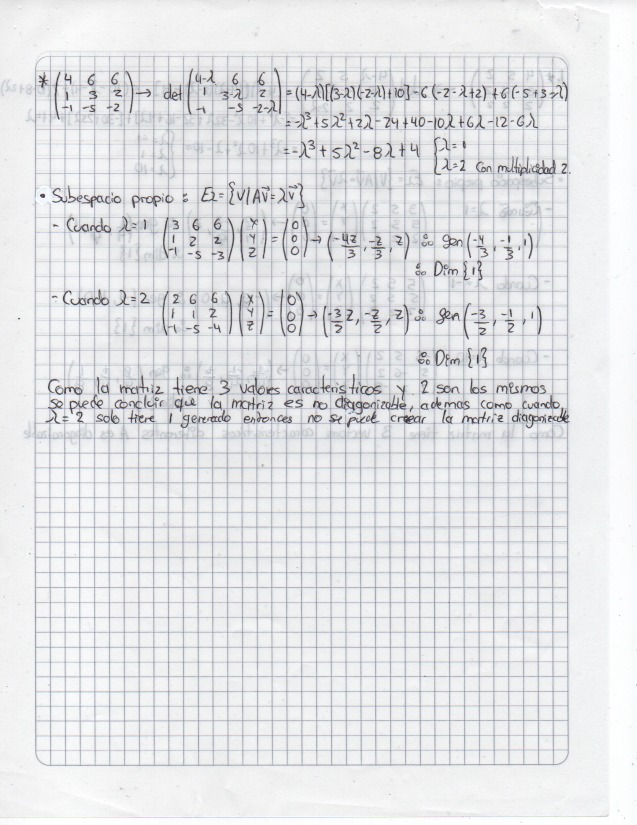 * (4 6 6 / 1 3 2 / -1 -5 -2) → det (4-λ 6 6 / 1 3-λ 2 / -1 -5 -2-λ) = (4-λ)[(3-λ)(-2-λ)+10] -6(-2-λ+2) +6(-5+3-λ)
= -λ³+5λ²+2λ-24+40-10λ+6λ-12-6λ
= -λ³+5λ²-8λ+4 {λ=1
{λ=2 con multiplicidad 2.
• Subespacio propio: Eλ={V/AV⃗=λV⃗}
- Cuando λ=1 (3 6 6 / 1 2 2 / -1 -5 -3) (x / y / z) = (0 / 0 / 0) → (-4z/3, -z/3, z) ∴ gen(-4/3, -1/3, 1)
∴ Dim {1}
- Cuando λ=2 (2 6 6 / 1 1 2 / -1 -5 -4) (x / y / z) = (0 / 0 / 0) → (-3/2 z, -z/2, z) ∴ gen(-3/2, -1/2, 1)
∴ Dim {1}
Como la matriz tiene 3 valores caracteristicos y 2 son los mismos
se puede concluir que la matriz es no diagonizable, ademas como cuando
λ=2 solo tiene 1 generado entonces no se puede crear la matriz diagonizable